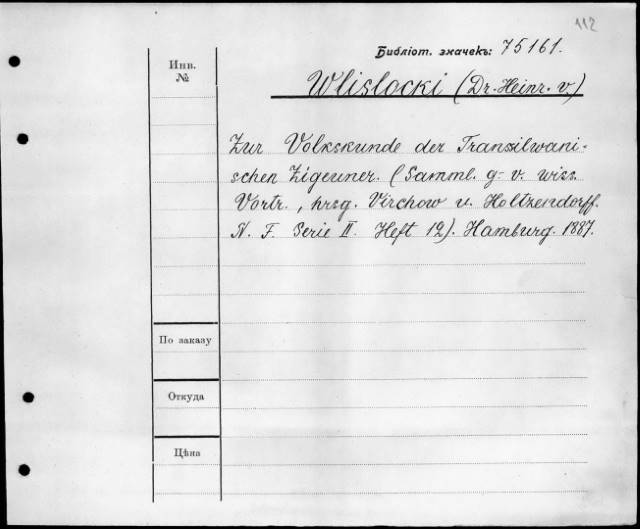 112
Библіот. значекъ: 75161.
Инв.
№
Wlislocki (Dr. Heinr. v.)
Zur Volkskunde der Transsilwani-
schen Zigeuner. (Samml. g. v. wiss.
Vortr., hrsg. Virchow u. Holtzendorff.
N. F. Serie II. Heft 12). Hamburg. 1887.
По заказу
Откуда
Цѣна